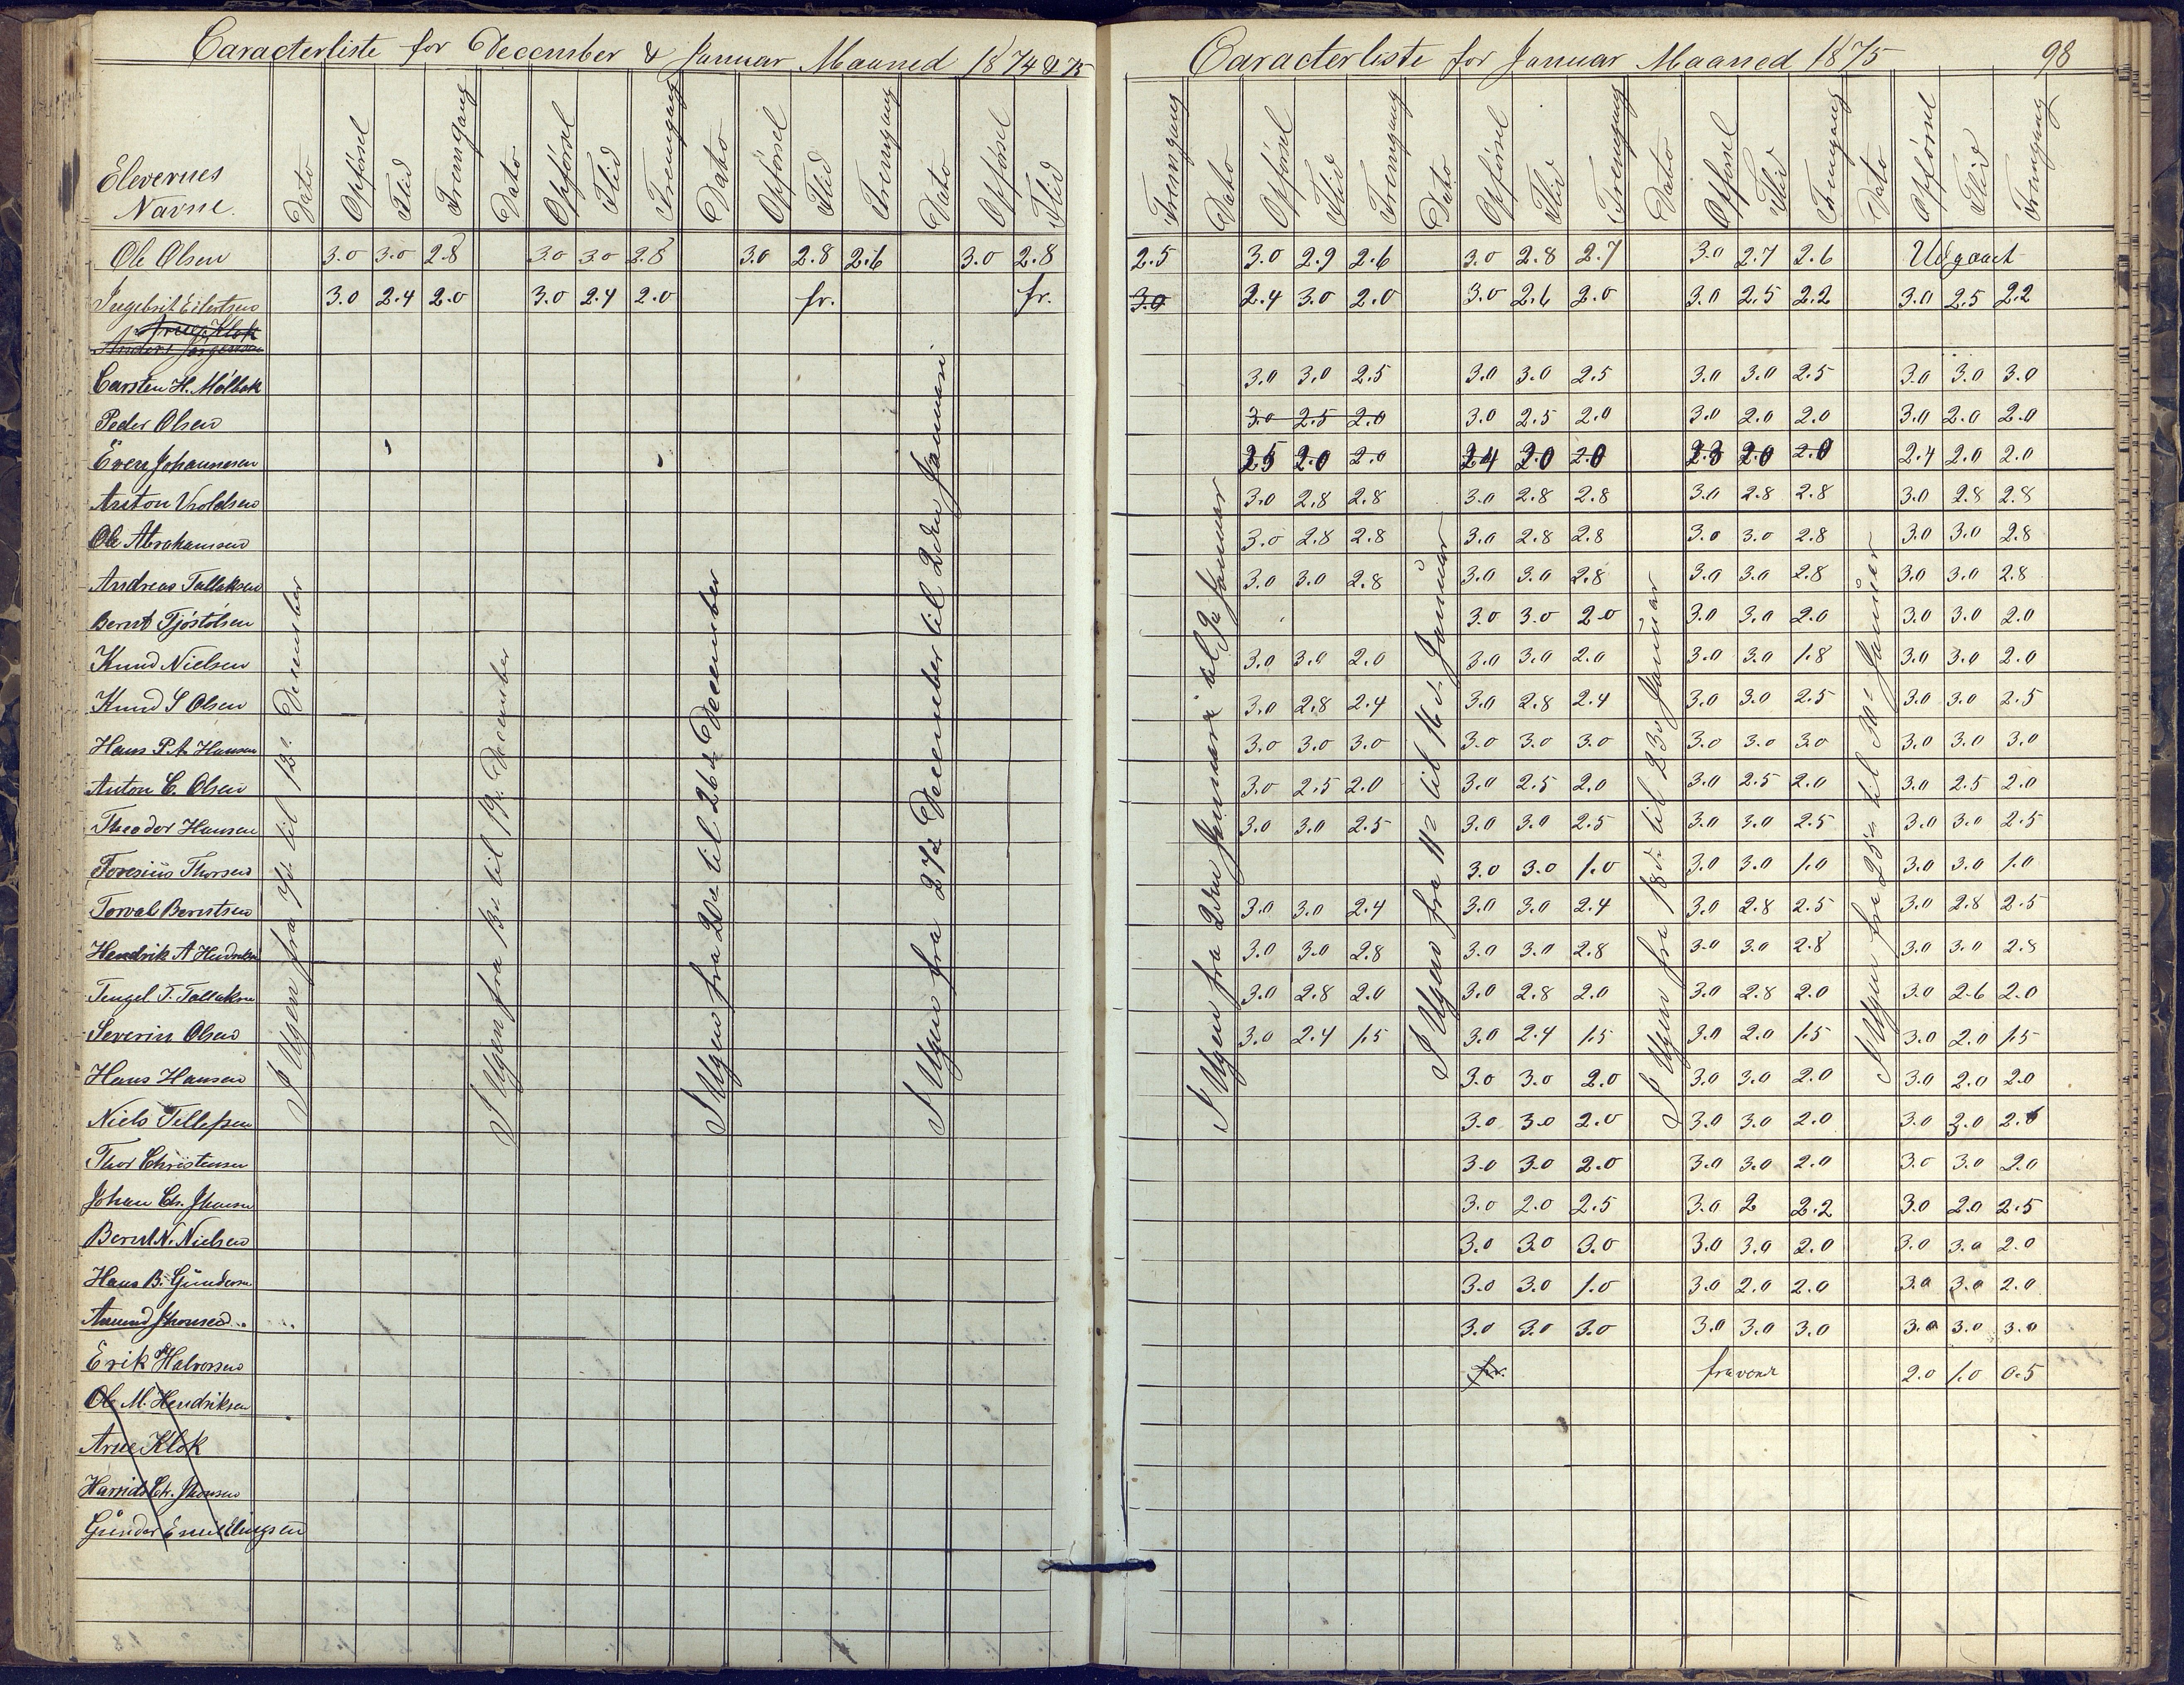 Caracterliste for December & Januar Maaned 1874 & 75
Elevernes Navne. Dato Opførsel Flid Fremgang Dato Opførsel Flid Fremgang Dato Opførsel Flid Fremgang Dato Opførsel Flid
Ole Olsen 3.0 3.0 2.8 3.0 3.0 2.8 3.0 2.8 2.6 3.0 2.8
Ingebrit Eilertsen 3.0 2.4 2.0 3.0 2.4 2.0 fr. fr.
Arne Klok
Anders Jørgensen
Carsten H. Mølbak
Peder Olsen
Even Johannesen
Anton Vroldsen
Ole Abrahamsen
Andreas Tallaksen
Bernt Tjøstølsen
Knud Nielsen
Knud S Olsen
Hans P.A. Hansen
Anton C. Olsen
Theodor Hansen
Thorsen
Torval Berntsen
Hendrik A Hendriksen
Tengel T. Tallaksen
Severin Olsen
Hans Hansen
Niels Tellefsen
Thor Christensen
Johan Chr. Jhonsen
Bernt N. Nielsen
Hans B. Gundersen
Amund Jhonsen
Erik Halvorsen
Ole M. Hendriksen
Arne Klok
Chr. Jhonsen
Gunder Emil Elingsen
I Ugen fra 7de til 12te December
I Ugen fra 13de til 19de December
I Ugen fra 20de til 26de December
I Ugen fra 27de December til 2den Januari
Caracterliste for Januar Maaned 1875 98
Fremgang Dato Opførsel Flid Fremgang Dato Opførsel Flid Fremgang Dato Opførsel Flid Fremgang Dato Opførsel Flid Fremgang
2.5 3.0 2.9 2.6 3.0 2.8 2.7 3.0 2.7 2.6 Udgaaet
3.0 2.4 3.0 2.0 3.0 2.6 2.0 3.0 2.5 2.2 3.0 2.5 2.2
3.0 3.0 2.5 3.0 3.0 2.5 3.0 3.0 2.5 3.0 3.0 3.0
3.0 2.5 2.0 3.0 2.5 2.0 3.0 2.0 2.0 3.0 2.0 2.0
2.5 2.0 2.0 2.4 2.0 2.0 2.3 2.0 2.0 2.4 2.0 2.0
3.0 2.8 2.8 3.0 2.8 2.8 3.0 2.8 2.8 3.0 2.8 2.8
3.0 2.8 2.8 3.0 2.8 2.8 3.0 3.0 2.8 3.0 3.0 2.8
3.0 3.0 2.8 3.0 3.0 2.8 3.0 3.0 2.8 3.0 3.0 2.8
3.0 3.0 2.0 3.0 3.0 2.0 3.0 3.0 2.0
3.0 3.0 2.0 3.0 3.0 2.0 3.0 3.0 1.8 3.0 3.0 2.0
3.0 2.8 2.4 3.0 2.8 2.4 3.0 3.0 2.5 3.0 3.0 2.5
3.0 3.0 3.0 3.0 3.0 3.0 3.0 3.0 3.0 3.0 3.0 3.0
3.0 2.5 2.0 3.0 2.5 2.0 3.0 2.5 2.0 3.0 2.5 2.0
3.0 3.0 2.5 3.0 3.0 2.5 3.0 3.0 2.5 3.0 3.0 2.5
3.0 3.0 1.0 3.0 3.0 1.0 3.0 3.0 1.0
3.0 3.0 2.4 3.0 3.0 2.4 3.0 2.8 2.5 3.0 2.8 2.5
3.0 3.0 2.8 3.0 3.0 2.8 3.0 3.0 2.8 3.0 3.0 2.8
3.0 2.8 2.0 3.0 2.8 2.0 3.0 2.8 2.0 3.0 2.6 2.0
3.0 2.4 1.5 3.0 2.4 1.5 3.0 2.0 1.5 3.0 2.0 1.5
3.0 3.0 2.0 3.0 3.0 2.0 3.0 2.0 2.0
3.0 3.0 2.0 3.0 3.0 2.0 3.0 3.0
3.0 3.0 2.0 3.0 3.0 2.0 3.0 3.0 2.0
3.0 2.0 2.5 3.0 2 2.2 3.0 2.0 2.5
3.0 3.0 3.0 3.0 3.0 2.0 3.0 3.0 2.0
3.0 3.0 1.0 3.0 2.0 2.0 3.0 3.0 2.0
3.0 3.0 3.0 3.0 3.0 3.0 3.0 3.0 3.0
fr. 2.0 1.0 0.5
I Ugen fra 2den Januari til 9de Januar
I Ugen fra 11te til 16de Januar
I Ugen fra 18de til 23de Januar
I Ugen fra 25de til 30te Januar